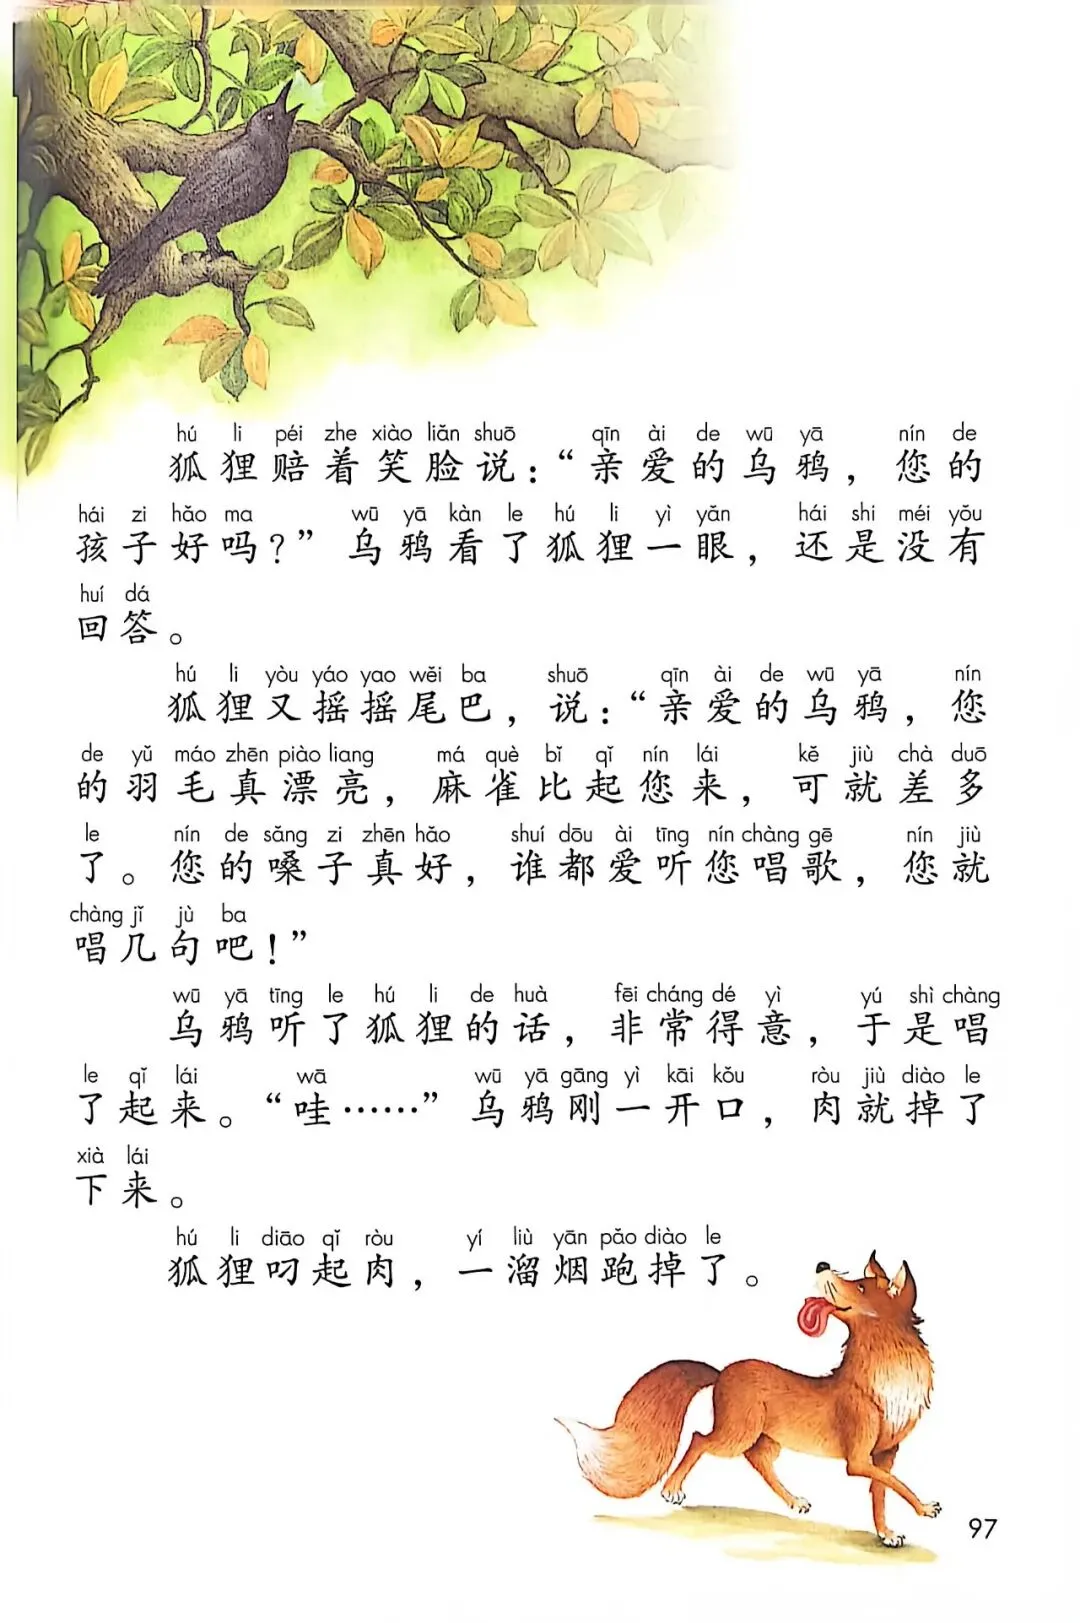 hú li péi zhe xiào liǎn shuō qīn ài de wū yā nín de
狐狸赔着笑脸说：“亲爱的乌鸦，您的
hái zi hǎo ma wū yā kàn le hú li yì yǎn hái shi méi yǒu
孩子好吗？”乌鸦看了狐狸一眼，还是没有
huí dá
回答。
hú li yòu yáo yao wěi ba shuō qīn ài de wū yā nín
狐狸又摇摇尾巴，说：“亲爱的乌鸦，您
de yǔ máo zhēn piào liang má què bǐ qǐ nín lái kě jiù chà duō
的羽毛真漂亮，麻雀比起您来，可就差多
le nín de sǎng zi zhēn hǎo shuí dōu ài tīng nín chàng gē nín jiù
了。您的嗓子真好，谁都爱听您唱歌，您就
chàng jǐ jù ba
唱几句吧！”
wū yā tīng le hú li de huà fēi cháng dé yì yú shì chàng
乌鸦听了狐狸的话，非常得意，于是唱
le qǐ lái wā wū yā gāng yì kāi kǒu ròu jiù diào le
了起来。“哇……”乌鸦刚一开口，肉就掉了
xià lái
下来。
hú li diāo qǐ ròu yí liù yān pǎo diào le
狐狸叼起肉，一溜烟跑掉了。
97